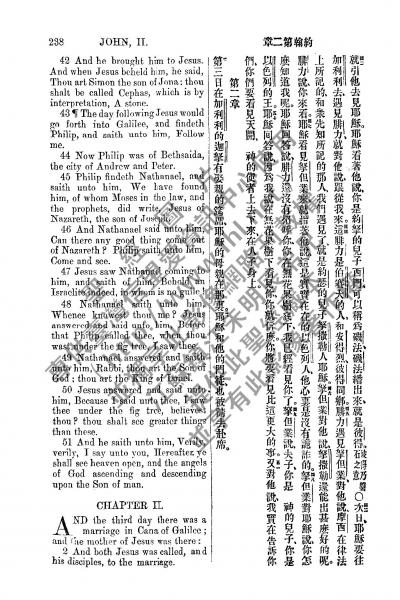 238 JOHN, II.
42 And he brought him to Jesus.
And when Jesus beheld him, he said,
Thou art Simon the son of Jona: thou
shalt be called Cephas, which is by
interpretation, A stone.
43 ¶ The day following Jesus would
go forth into Galilee, and findeth
Philip, and saith unto him, Follow
me.
44 Now Philip was of Bethsaida,
the city of Andrew and Peter.
45 Philip findeth Nathanael, and
saith unto him, We have found
him, of whom Moses in the law, and
the prophets, did write, Jesus of
Nazareth, the son of Joseph.
46 And Nathanael said unto him,
Can there any good thing come out
of Nazareth? Philip saith unto him,
Come and see.
47 Jesus saw Nathanael coming to
him, and saith of him, Behold an
Israelite indeed, in whom is no guile!
48 Nathanael saith unto him,
Whence knowest thou me? Jesus
answered and said unto him, Before
that Philip called thee, when thou
wast under the fig tree, I saw thee.
49 Nathanael answered and saith
unto him, Rabbi, thou art the Son of
God; thou art the King of Israel.
50 Jesus answered and said unto
him, Because I said unto thee, I saw
thee under the fig tree, believest
thou? thou shalt see greater things
than these.
51 And he saith unto him, Verily,
verily, I say unto you, Hereafter ye
shall see heaven open, and the angels
of God ascending and descending
upon the Son of man.
CHAPTER II.
AND the third day there was a
marriage in Cana of Galilee;
and the mother of Jesus was there:
2 And both Jesus was called, and
his disciples, to the marriage.
約翰第二章
就引他去見耶穌、耶穌看著他說、你是約拿的兒子西門、可以稱爲磯法、磯法繙出來、就是彼得。○次日耶穌要往
加利利去、遇見腓力、就對他說、跟從我來。這腓力是伯賽大的人、和安得烈彼得同鄉。腓力遇見拿但業對他說、摩西在律法
上所記的、和衆先知所記的那人、我們遇見了、就是約瑟的兒子拿撒勒人耶穌。拿但業對他說、拿撒勒還能出甚麽好的呢。
腓力說、你來看。耶穌看見拿但業來、就指着他說、這是以色列人、他心裏是沒有詭詐的。拿但業對耶穌說、你怎
麽知道我呢、耶穌回答說、腓力還沒有招呼你、你在無花果樹底下、我已經看見你了。拿但業說、夫子、你是 神的兒子、你是
以色列的王。耶穌回答說、因爲我說在無花果樹下看見你、你就信麽、你將要看見比這更大的事。又對他說、我實在告訴你
們、你們要看見天開、 神的使者上去下來在人子身上。
第二章
第三日在加利利的迦拿有娶親的筵席、耶穌的母親在那裏。耶穌和他的門徒、也被請去赴席。